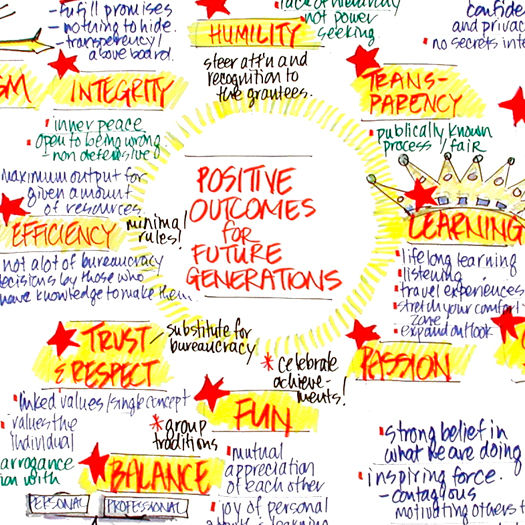 - fulfill promises
- nothing to hide.
- transparency/
above board.
INTEGRITY
inner peace
open to being wrong
non defensive
HUMILITY
lack of hierarchy
not power
seeking
steer att'n and
recognition to
the grantees.
and privac
no secrets inte
TRANS-
PARENCY
publically known
process / fair
maximum output for
given amount
of resources
EFFICIENCY
minimal
rules!
not a lot of bureaucracy
decisions by those who
have knowledge to make them.
POSITIVE
OUTCOMES
for
FUTURE
GENERATIONS
LEARNING
lifelong learning
listening
travel experiences
stretch your comfort
zone
expand outlook
TRUST
& RESPECT
substitute for
bureaucracy
linked values / single concept
values the
individual
arrogance
* celebrate
achieve-
ments!
PASSION
strong belief in
what we are doing
inspiring force.
- contagious
motivating others
FUN
* group
traditions
mutual
appreciation
of each other
joy of personal
BALANCE
PERSONAL
PROFESSIONAL